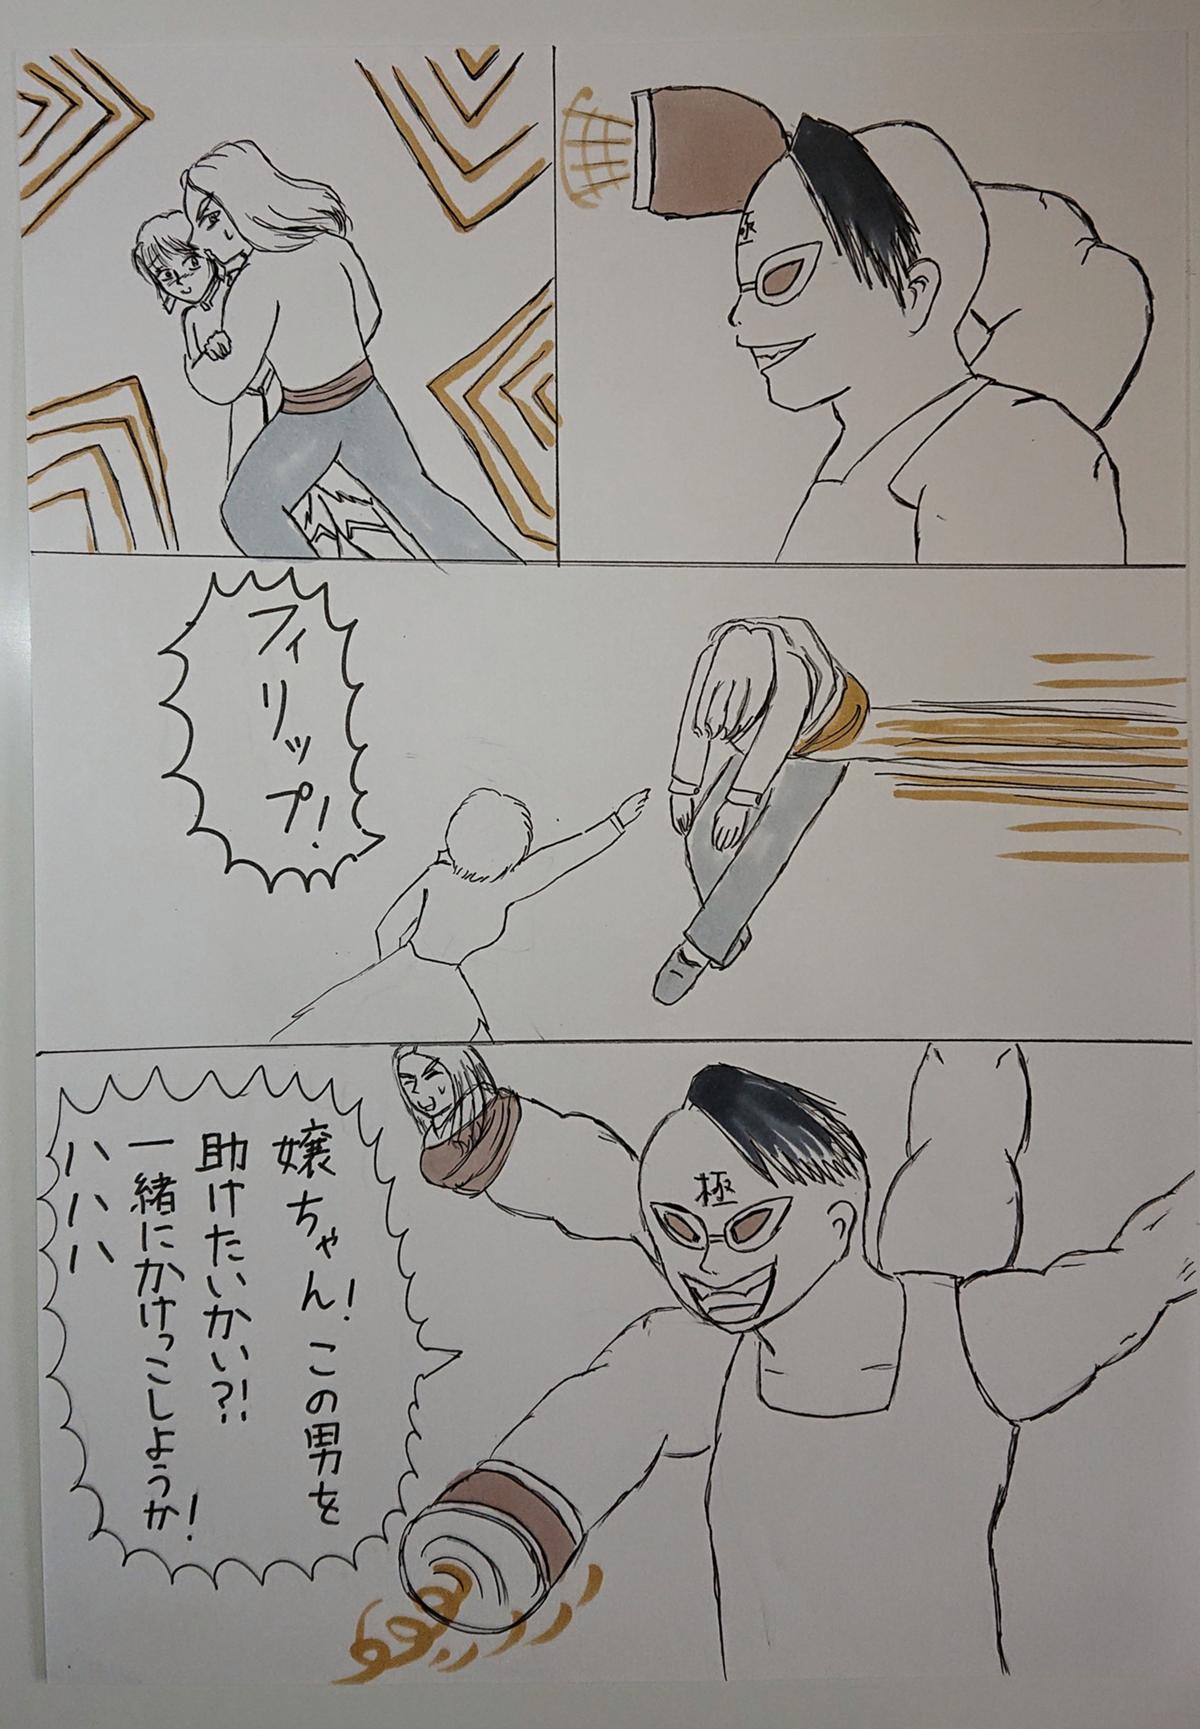 極
フィリップ!
極
嬢ちゃん!この男を
助けたいかい?!
一緒にかけっこしようか!
ハハハ